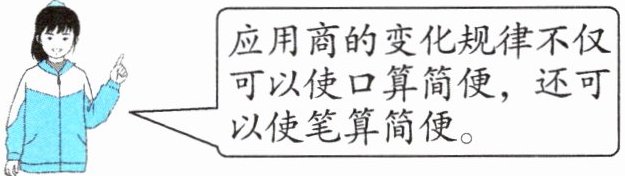 应用商的变化规律不仅
可以使口算简便，还可
以使笔算简便。